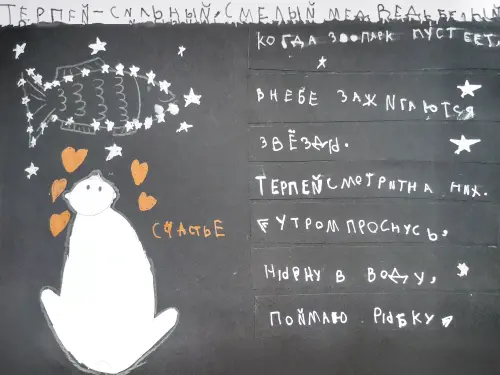 ТЕРПЕЙ-СИЛЬНЫЙ, СМЕЛЫЙ МЕДВЕДЬ БЕЛЫЙ
КОГДА ЗООПАРК ПУСТЕЕТ,
В НЕБЕ ЗАЖИГАЮТСЯ
ЗВЁЗДЫ.
ТЕРПЕЙ СМОТРИТ НА НИХ.
УТРОМ ПРОСНУСЬ,
НЫРНУ В ВОДУ,
ПОЙМАЮ РЫБКУ,
СЧАСТЬЕ